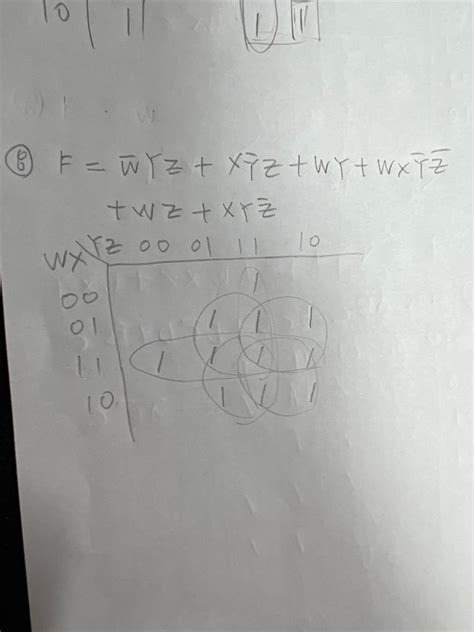 10 | 1 1 1
⑧ F = W̅YZ + XY̅Z + WY + WXY̅Z̅
+ WZ + XYZ̅
WX\YZ 00 01 11 10
00 1
01 1 1 1
11 1 1 1 1
10 1 1 1